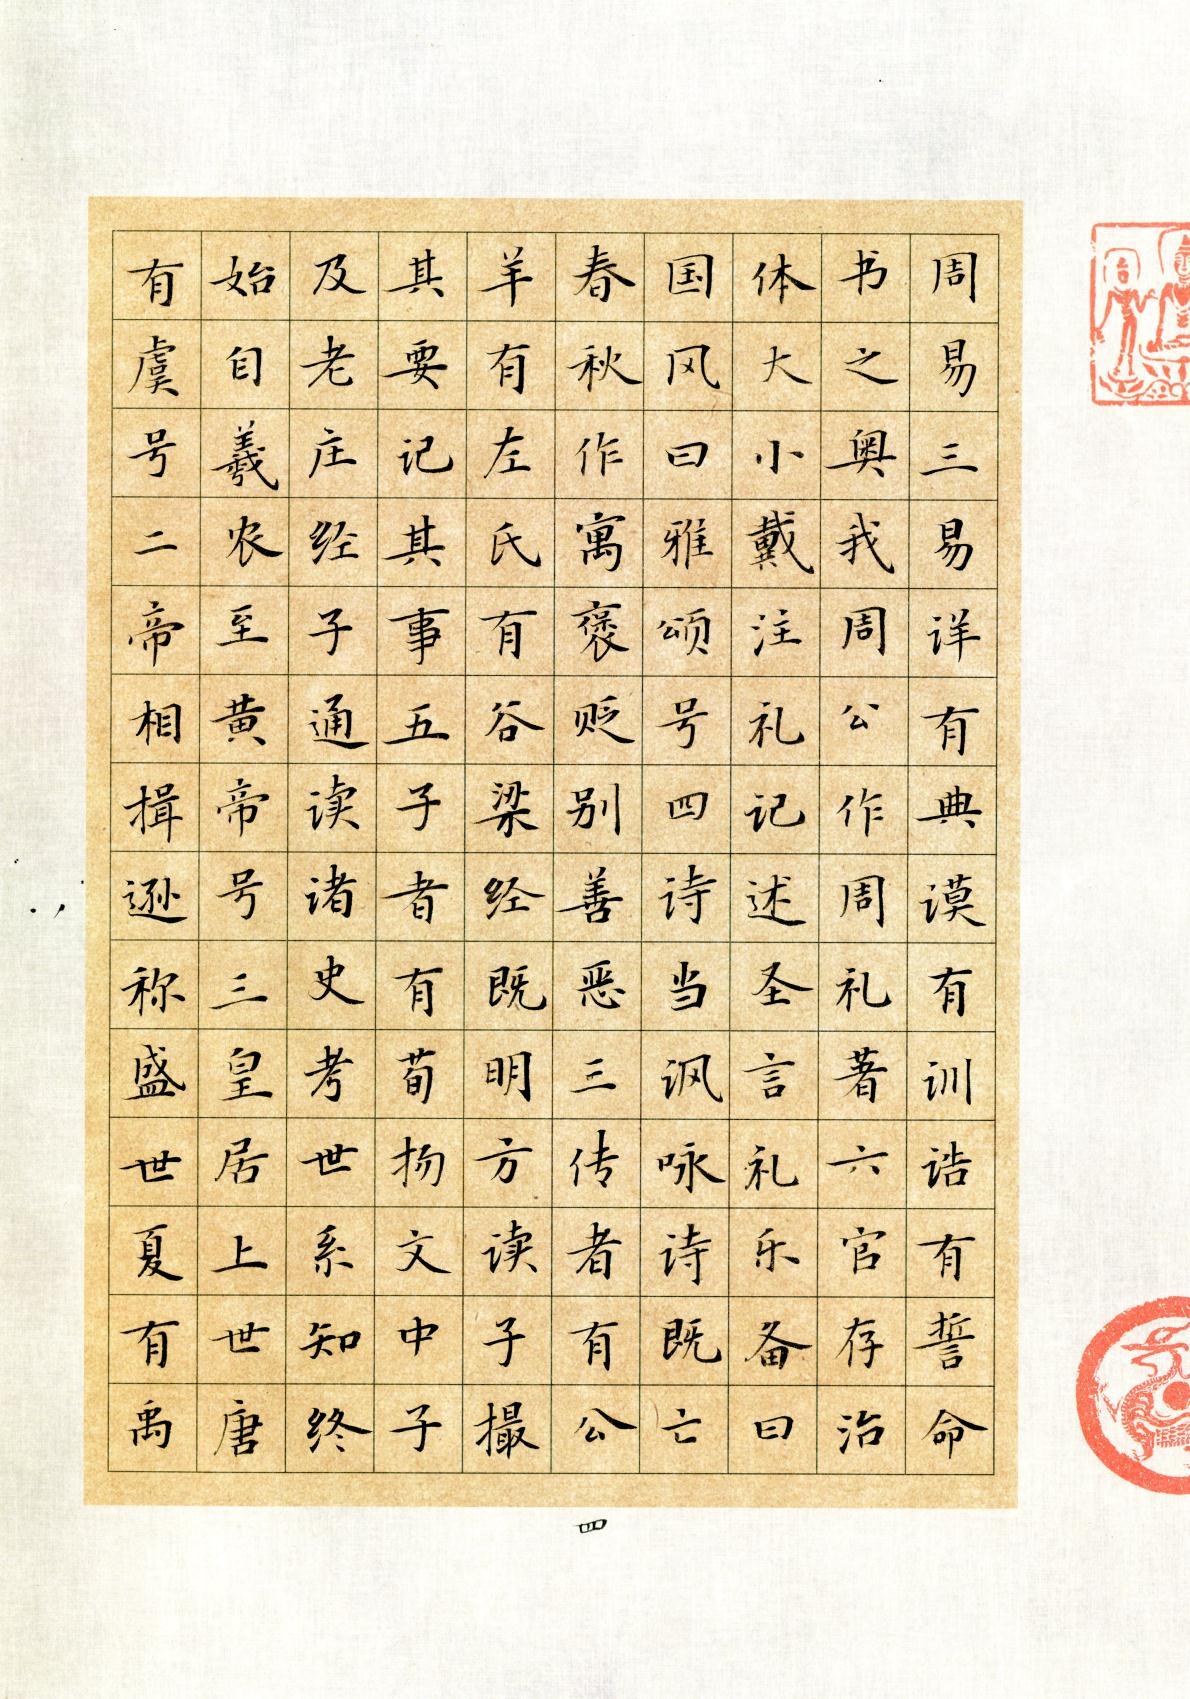 周易三易详有典谟有训诰有誓命
书之奥我周公作周礼著六官存治
体大小戴注礼记述圣言礼乐备曰
国风曰雅颂号四诗当讽咏诗既亡
春秋作寓褒贬别善恶三传者有公
羊有左氏有谷梁经既明方读子撮
其要记其事五子者有荀扬文中子
及老庄经子通读诸史考世系知终
始自羲农至黄帝号三皇居上世唐
有虞号二帝相揖逊称盛世夏有禹
四